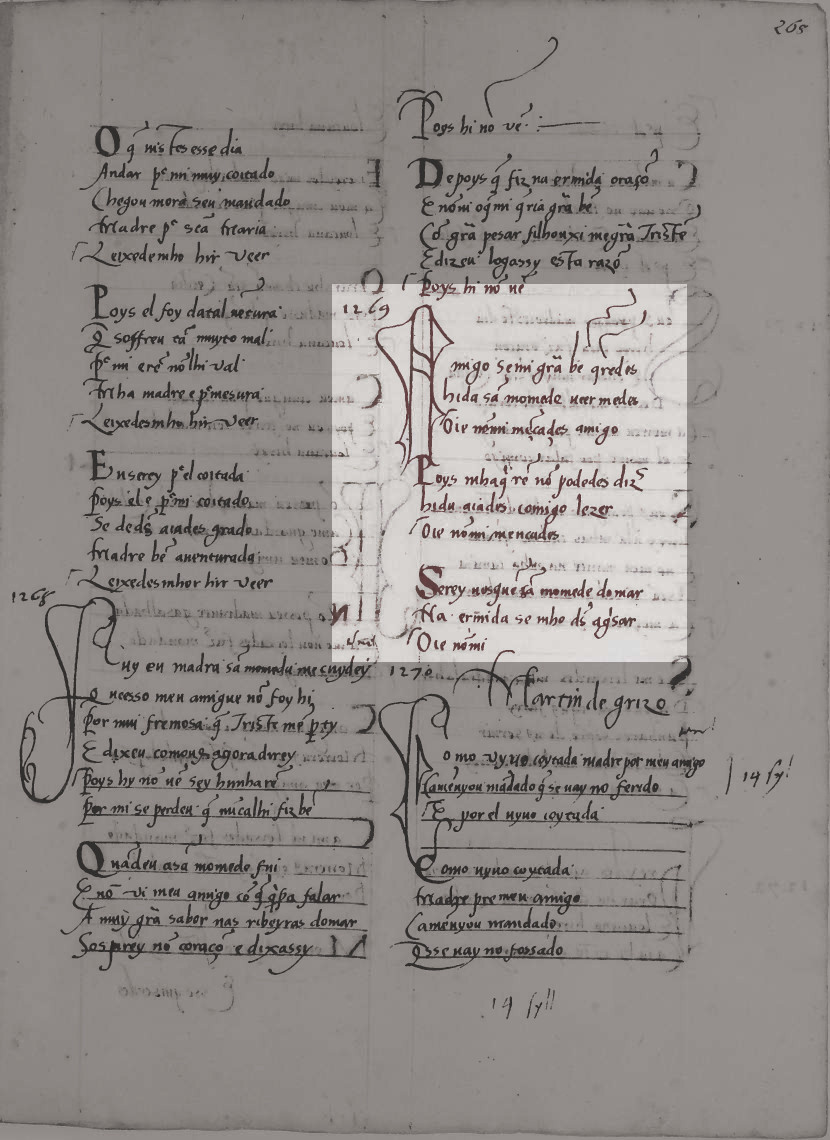 265
O q̄ uistes esse dia
Andar p̄ mi muy coitado
Chegou morè seu mandado
Madre p̄ scā Maria
Leixedemho hir veer
Poys el foy datal uētura
Q̄ soffreu tā muyto mal
P̄ mi erē nō lhi ual
Mha madre e p̄ mesura
Leixedesmho hir veer
Eu serey p̄ el coitada
Poys el e p̄ mi coitado
Se de ds̄ aiades grado
Madre bē auenturada
Leixedesmho hir veer
1268
Fuy eu madrā sā momedu me cuydey
Q̄ uesso meu amigue nō foy hi
Por mui fremosa q̄ Triste me p̄ty
E dixeu comoug agora direy
Poys hy nō uē sey hunha rē
Por mi se perdeu q̄ nūcalhi fiz bē
Quādeu a sā momede fui
E nō vi meu amigo cō q̄ q̄ria falar
A muy grā sabor nas ribeyras domar
Sospirey nō coraçō e dixassy
Poys hi nō vē
Depoys q̄ fiz na ermida oraçō
E nō ui o q̄ mi q̄ria grā bē
Cō grā pesar filhouxi me grā Tristē
E dizeu logassy esta razō
Poys hi nō uē
1269
Amigo se mi grā bē q̄redes
Hida sā momede ueer medes
Oie nō mi mēçades amigo
Poys mhaq̄ rē nō podedes diz̄
Hidu aiades comigo lezer
Oie nō mi mençades
Serey uosque sā momede do mar
Na ermida se mho ds̄ aguisar
Oie nō mi
1270
Martin de grizo
Como vyuo coytada madre por meu amigo
Ca menuyou mādado q̄ se uay no ferido
E por el uyuo coytada
Como uyuo coytada
Madre pre meu amigo
Ca menuyou mandado
Q̄sse uay no fossado
19 syl
19 syll